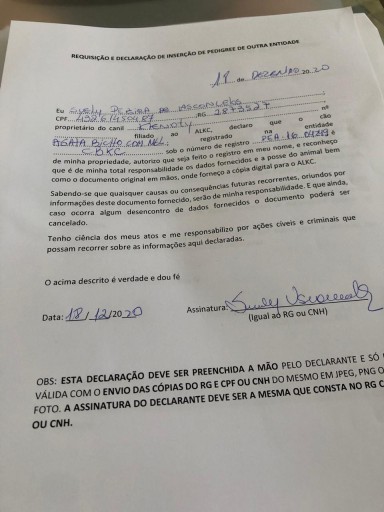 REQUISIÇÃO E DECLARAÇÃO DE INSERÇÃO DE PEDIGREE DE OUTRA ENTIDADE
18 de DEZEMBRO 2020
Eu PEREIRA DE VASCONCELOS
CPF RG nº
proprietário do canil
filiado ao ALKC, declaro que o cão
AGATA BICHO COM MEL registrado na entidade
CBKC sob o número de registro
de minha propriedade, autorizo que seja feito o registro em meu nome, e reconheço
que é de minha total responsabilidade os dados fornecidos e a posse do animal bem
como o documento original em mãos, onde forneço a cópia digital para o ALKC.
Sabendo-se que quaisquer causas ou consequências futuras recorrentes, oriundos por
informações deste documento fornecido, serão de minha responsabilidade. E que ainda,
caso ocorra algum desencontro de dados fornecidos o documento poderá ser
cancelado.
Tenho ciência dos meus atos e me responsabilizo por ações cíveis e criminais que
possam recorrer sobre as informações aqui declaradas.
O acima descrito é verdade e dou fé
Data: 18/12/2020 Assinatura:
(Igual ao RG ou CNH)
OBS: ESTA DECLARAÇÃO DEVE SER PREENCHIDA A MÃO PELO DECLARANTE E SÓ
VÁLIDA COM O ENVIO DAS CÓPIAS DO RG E CPF OU CNH DO MESMO EM JPEG, PNG O
FOTO. A ASSINATURA DO DECLARANTE DEVE SER A MESMA QUE CONSTA NO RG C
OU CNH.